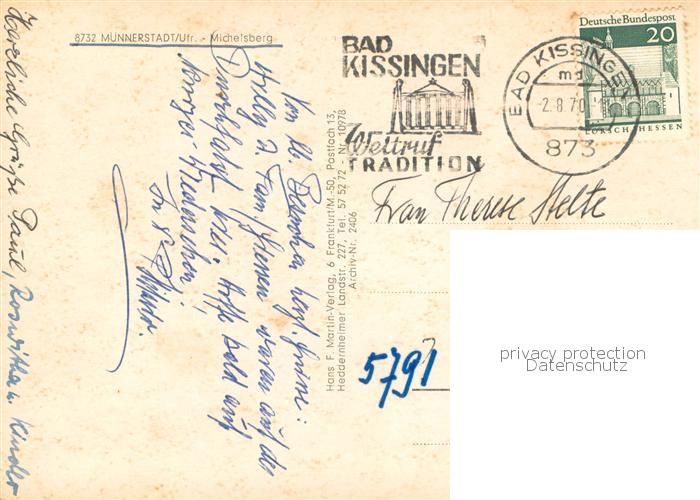 8732 MÜNNERSTADT/Ufr. - Michelsberg
BAD
KISSINGEN
Weltruf
TRADITION
BAD KISSINGEN
md
-2.8.70
873
Deutsche Bundespost
20
LORSCH HESSEN
Frau Therese Stelte
5791
Hans F. Martin-Verlag, 6 Frankfurt/M.-50, Postfach 13,
Heddernheimer Landstr. 227, Tel. 57 52 72 - Nr. 10978
Archiv-Nr. 2406
Von lb. herzl. Grüsse:
u. Fam. waren auf der
Durchfahrt hier. Hoffe bald auf
Wiedersehen
Herzliche Grüße Paul, Roswitha u. Kinder
privacy protection
Datenschutz